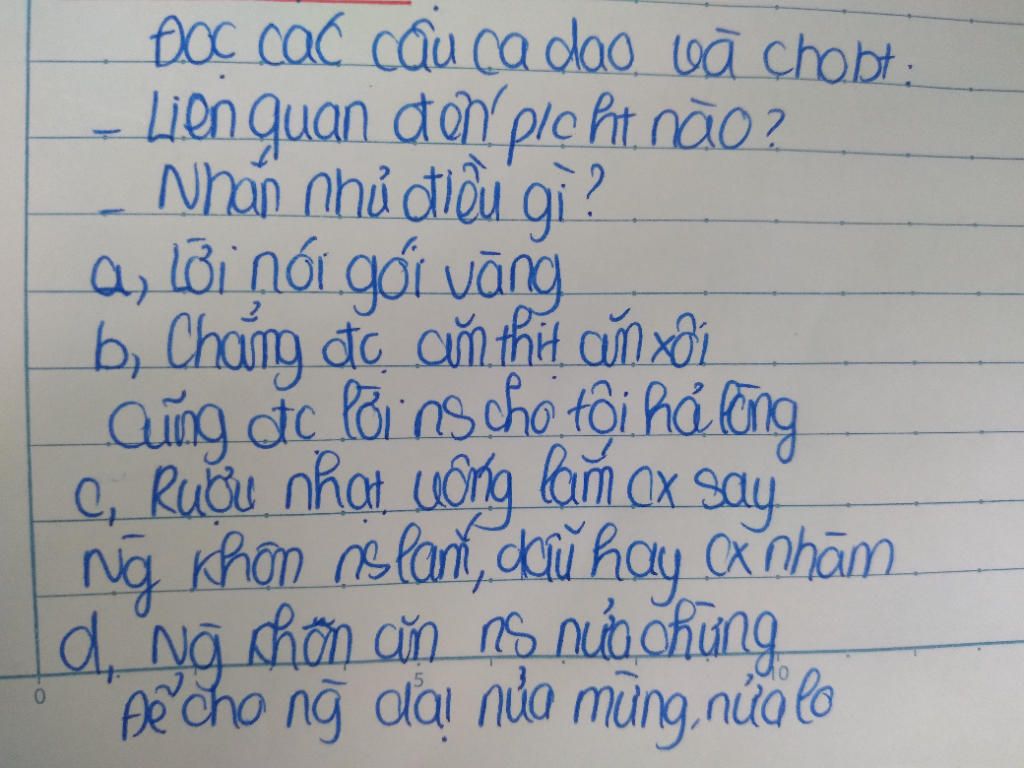 Đọc các câu ca dao và cho bt:
- Liên quan đến p/c ht nào?
- Nhắn nhủ điều gì?
a, Lời nói gói vàng
b, Chẳng đc ăn thịt ăn xôi
Cũng đc lời ns cho tôi hả lòng
c, Rượu nhạt uống lắm cx say
Ng khôn ns lắm, dẫu hay cx nhàm
d, Ng khôn ăn ns nửa chừng
Để cho ng dại nửa mừng, nửa lo
0 5 10